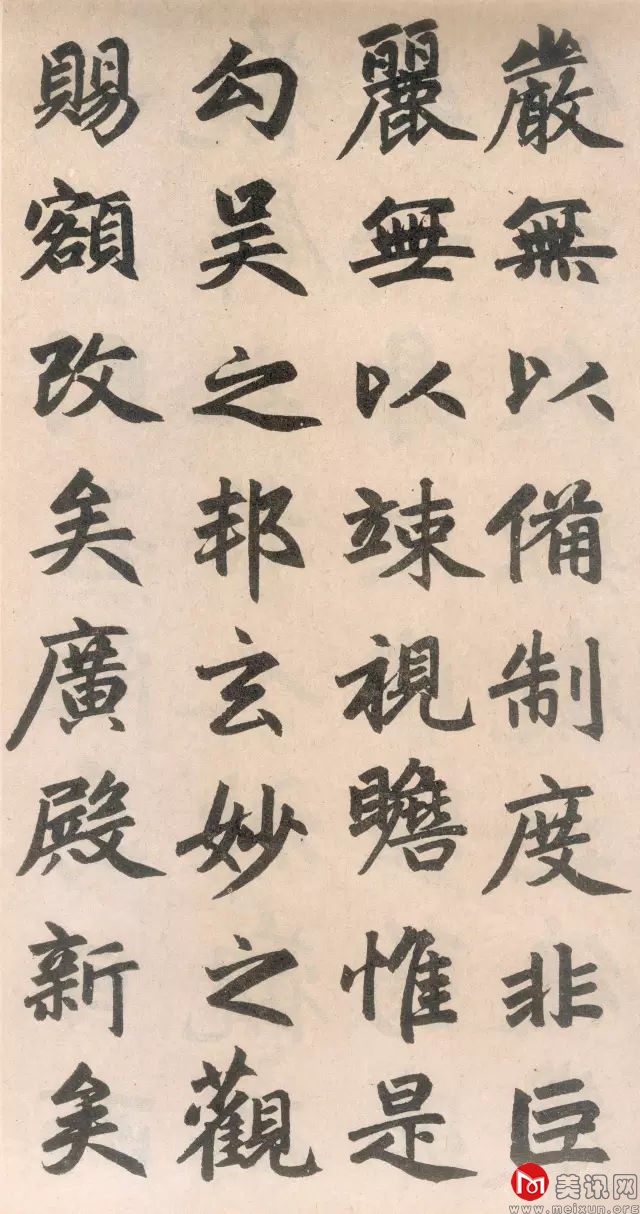 嚴無以備制度非巨
麗無以竦視瞻惟是
勾吴之邦玄妙之觀
賜額改矣廣殿新矣
美讯网
www.meixun.org